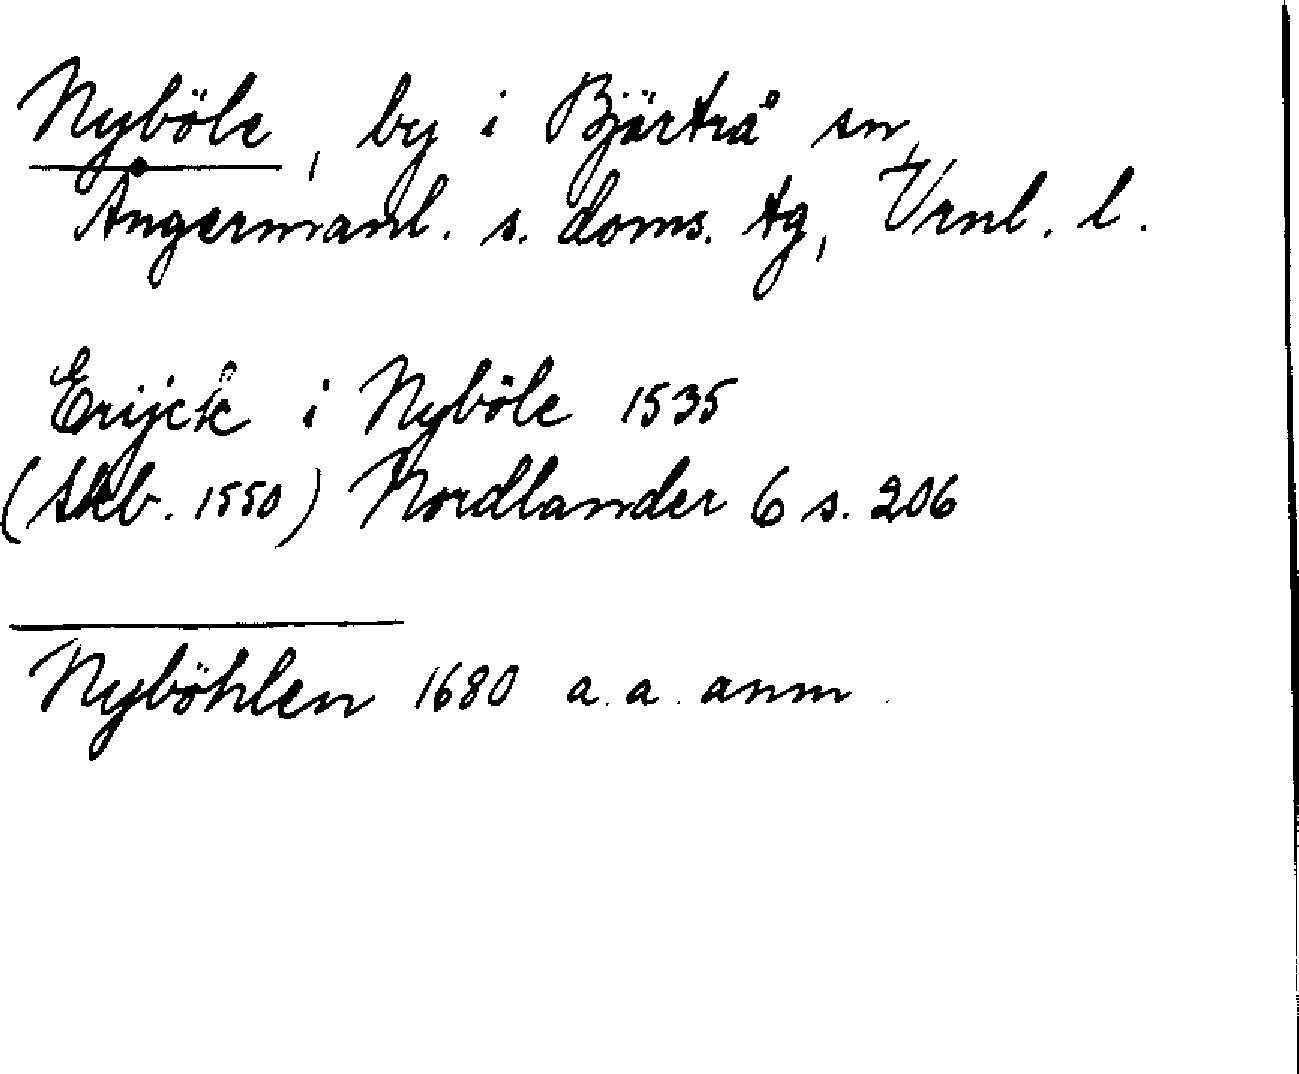 Nyböle, by i Bjärtrå sn,
Ångermanl. s. doms. tg, Vrnl. l.
Erijck i Nyböle 1535
(skb. 1550) Nordlander 6 s. 206
Nyböhlen 1680 a. a. anm.